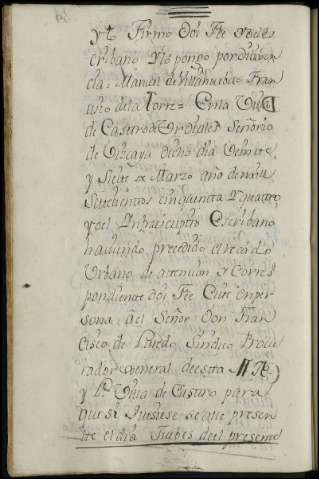 y Firmo Doi Fee yo el es
cribano y lo pongo por diligen
cia = Manuel de Villanueba = Fran
cisco de la Torre = En la Villa
de Castro de Urdiales Señorio
de Vizcaya dicho dia veinte
y siete de Marzo año de mill
setecientos cinquenta y quattro
yo el Infraescripto Escribano
haviendo precedido el recado
Urbano de atencion y Corres
pondiente doi Fee Cite en per
sona a el Señor Don Fran
cisco de Sindico Procu
rador General de esta
y Villa de Castro para
que si quisiese se que presen
te el dia Jueves del presente